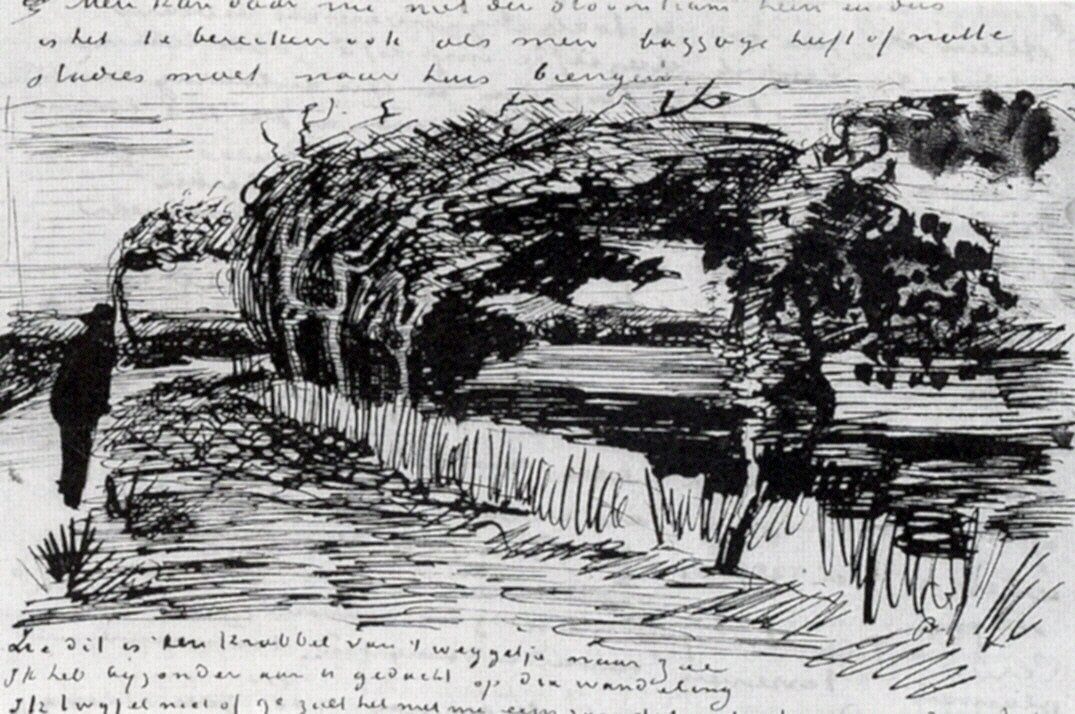 Men kan daar me met den stoomtram heen en dus
is het te bereiken ook als men baggage heeft of natte
studies moet naar huis brengen.
Zie dit is een krabbel van 't weggetje naar zee
Ik heb byzonder aan U gedacht op die wandeling
Ik twyfel niet of ge zult het met me eens